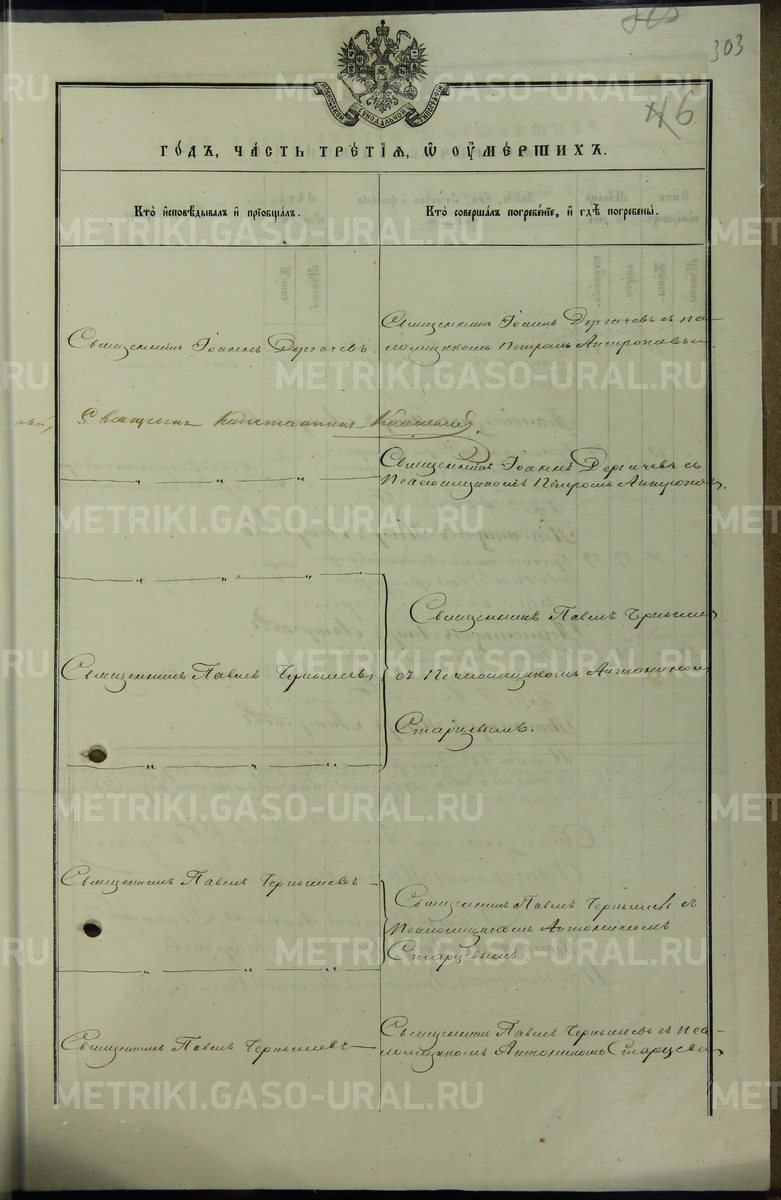 303
46
МОСКОВСКОЙ СѴНОДАЛЬНОЙ ТИПОГРАФІИ
ГОДЪ, ЧАСТЬ ТРЕТІЯ, Ѡ ОУМЕРШИХЪ.
Кто исповѣдывалъ и прїобщалъ.
Кто совершалъ погребенїе, и гдѣ погребены.
Священникъ Іоаннъ Дергачевъ
Священникъ Іоаннъ Дергачевъ съ пса-
ломщикомъ Петромъ
Священникъ Константинъ
Священникъ Іоаннъ Дергачевъ съ
Псаломщикомъ Петромъ
Священникъ Павелъ Чернышевъ
Священникъ Павелъ
съ Псаломщикомъ Антониномъ
Старцевымъ.
Священникъ Павелъ Чернышевъ
Священникъ Павелъ Чернышевъ съ
Псаломщикомъ Антониномъ
Старцевымъ.
Священникъ Павелъ Чернышевъ
Священникъ Павелъ Чернышевъ съ Пса-
ломщикомъ Антониномъ
METRIKI.GASO-URAL.RU